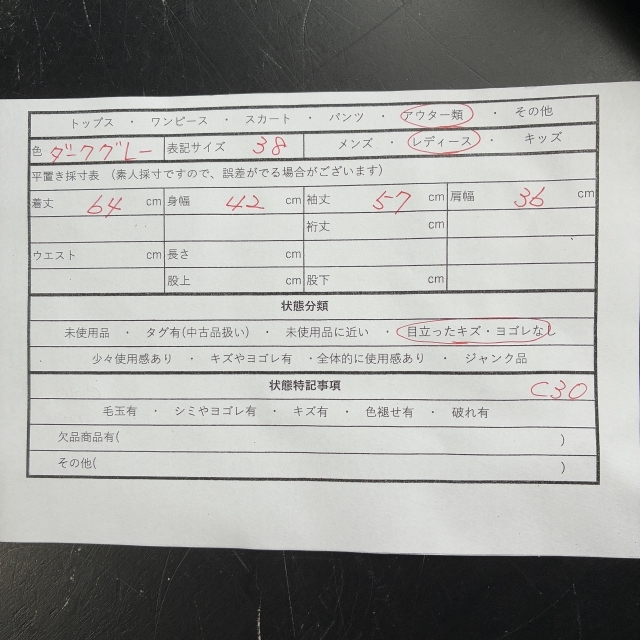 トップス ・ ワンピース ・ スカート ・ パンツ ・ アウター類 ・ その他
色 ダークグレー 表記サイズ 38 メンズ ・ レディース ・ キッズ
平置き採寸表 (素人採寸ですので、誤差がでる場合がございます)
着丈 64 cm 身幅 42 cm 袖丈 57 cm 肩幅 36 cm
裄丈 cm
ウエスト cm 長さ cm
股上 cm 股下 cm
状態分類
未使用品 ・ タグ有(中古品扱い) ・ 未使用品に近い ・ 目立ったキズ・ヨゴレなし
少々使用感あり ・ キズやヨゴレ有 ・全体的に使用感あり ・ ジャンク品
状態特記事項 C30
毛玉有 ・ シミやヨゴレ有 ・ キズ有 ・ 色褪せ有 ・ 破れ有
欠品商品有( )
その他( )